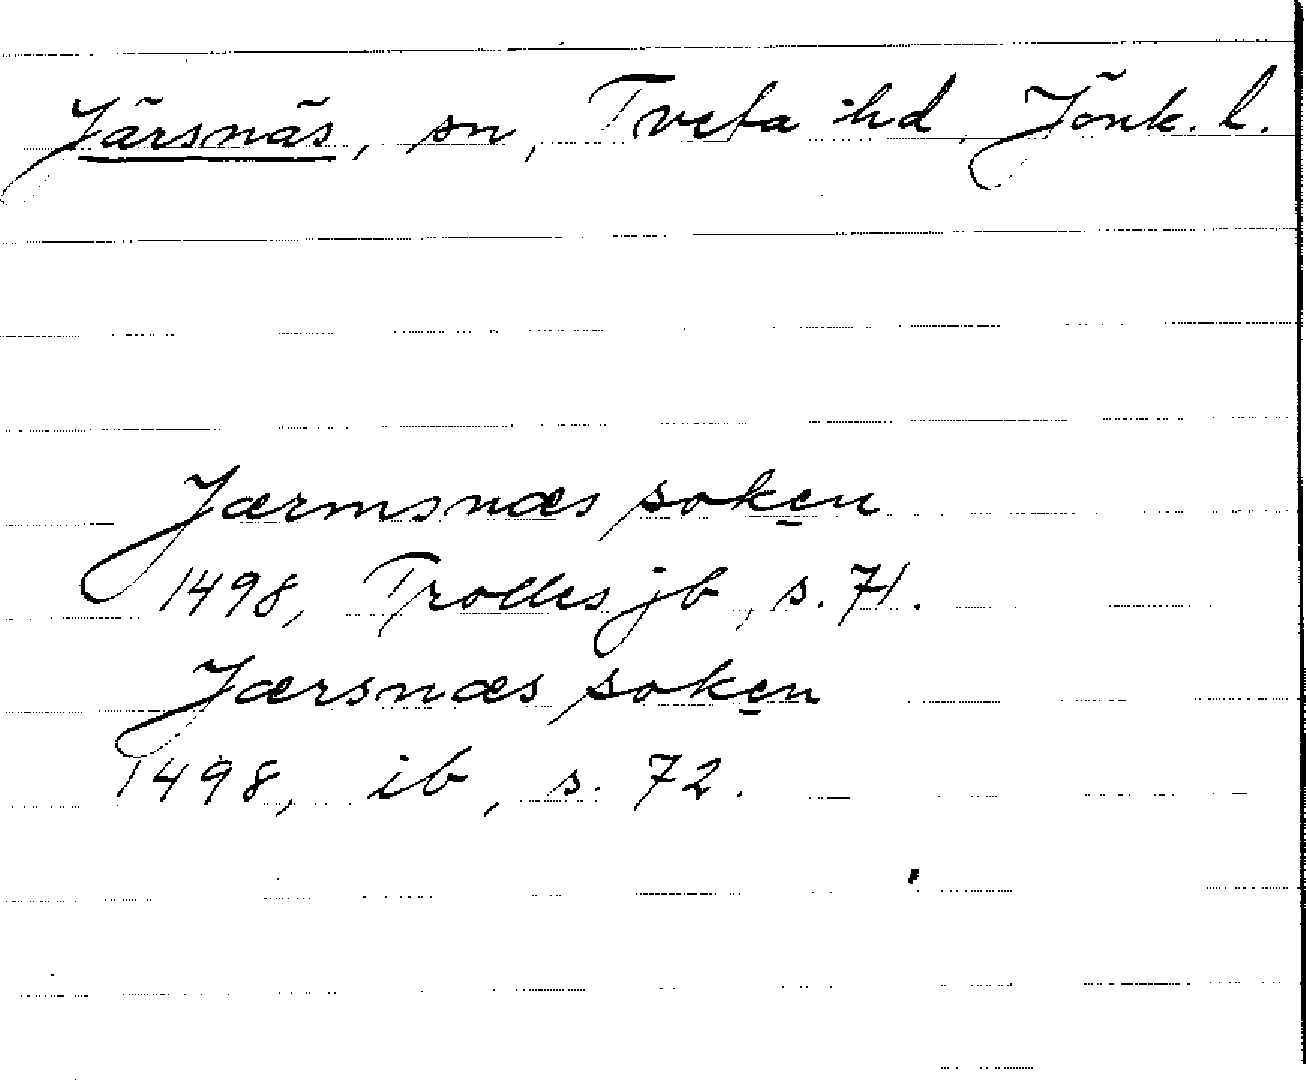 Järsnäs, sn, Tveta hd, Jönk. l.
Jærmsnæs soken
1498, Trolles jb, s. 71.
Jærsnæs soken
1498, ib, s. 72.